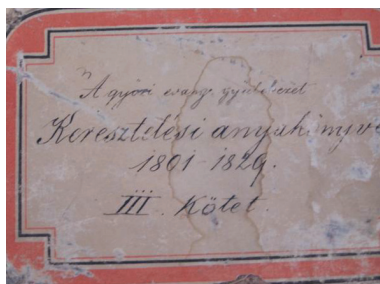 A győri evang. gyülekezet
Keresztelési anyakönyve
1801-1829.
III. Kötet.